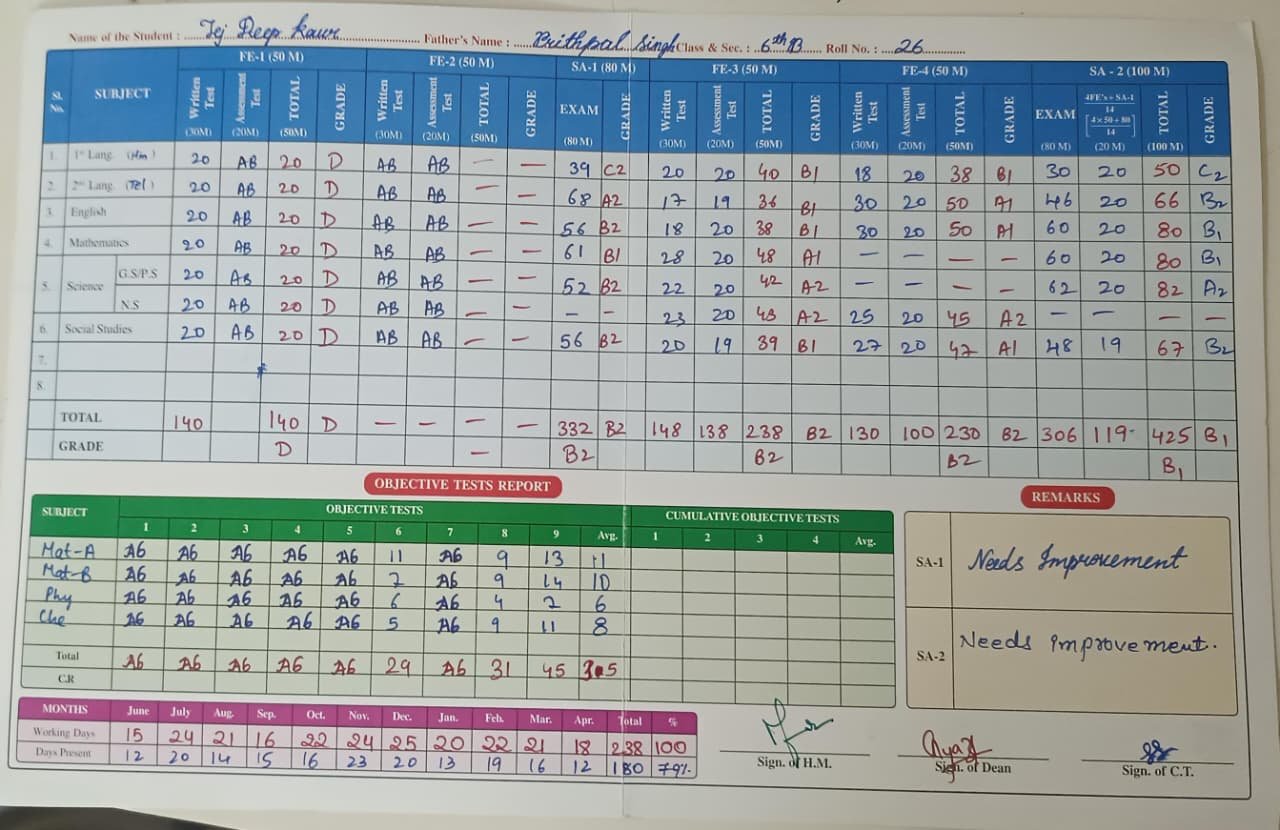 Name of the Student : Tej Deep kaur Father's Name : Prithpal Singh Class & Sec. : 6th B Roll No. : 26
FE-1 (50 M) FE-2 (50 M) SA-1 (80 M) FE-3 (50 M) FE-4 (50 M) SA - 2 (100 M)
Sl. No. SUBJECT Written Test (30M) Assessment Test (20M) TOTAL (50M) GRADE Written Test (30M) Assessment Test (20M) TOTAL (50M) GRADE EXAM (80 M) GRADE Written Test (30M) Assessment Test (20M) TOTAL (50M) GRADE Written Test (30M) Assessment Test (20M) TOTAL (50M) GRADE EXAM (80 M) 4FE's+SA-1 14 [4×50+80 14] (20 M) TOTAL (100 M) GRADE
1. 1st Lang. (Hin) 20 AB 20 D AB AB — — 39 C2 20 20 40 B1 18 20 38 B1 30 20 50 C2
2. 2nd Lang. (Tel) 20 AB 20 D AB AB — — 68 A2 17 19 36 B1 30 20 50 A1 46 20 66 B2
3. English 20 AB 20 D AB AB — — 56 B2 18 20 38 B1 30 20 50 A1 60 20 80 B1
4. Mathematics 20 AB 20 D AB AB — — 61 B1 28 20 48 A1 — — — — 60 20 80 B1
5. Science G.S/P.S 20 AB 20 D AB AB — — 52 B2 22 20 42 A2 — — — — 62 20 82 A2
N.S 20 AB 20 D AB AB — — — — 23 20 43 A2 25 20 45 A2 — — — —
6. Social Studies 20 AB 20 D AB AB — — 56 B2 20 19 39 B1 27 20 47 A1 48 19 67 B2
7.
8.
TOTAL 140 140 D — — — — 332 B2 148 138 238 B2 130 100 230 B2 306 119 425 B1
GRADE D — B2 B2 B2 B1
OBJECTIVE TESTS REPORT
REMARKS
SUBJECT OBJECTIVE TESTS CUMULATIVE OBJECTIVE TESTS
1 2 3 4 5 6 7 8 9 Avg. 1 2 3 4 Avg.
Mat-A A6 A6 A6 A6 A6 11 A6 9 13 11
Mat-B A6 A6 A6 A6 A6 7 A6 9 14 10
Phy A6 A6 A6 A6 A6 6 A6 4 7 6
Che A6 A6 A6 A6 A6 5 A6 9 11 8
Total A6 A6 A6 A6 A6 29 A6 31 45
C.R
SA-1 Needs Improvement
SA-2 Needs Improvement.
MONTHS June July Aug. Sep. Oct. Nov. Dec. Jan. Feb. Mar. Apr. Total %
Working Days 15 24 21 16 22 24 25 20 22 21 18 238 100
Days Present 12 20 14 15 16 23 20 13 19 16 12 180 79%
Sign. of H.M. Sign. of Dean Sign. of C.T.